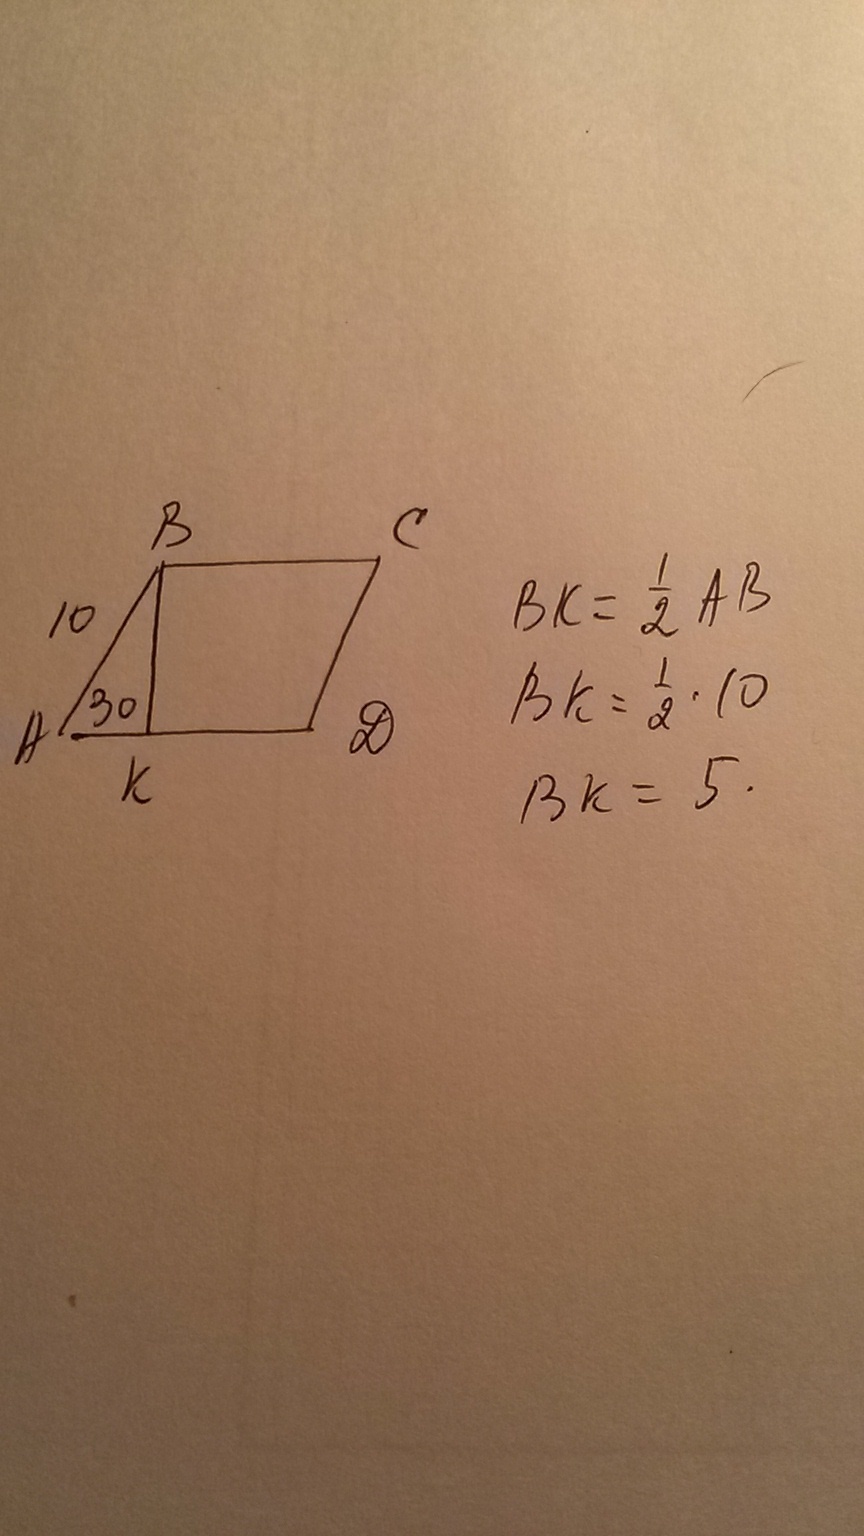 B
C
10
30
A
D
K
BK = 1/2 AB
BK = 1/2 · 10
BK = 5.